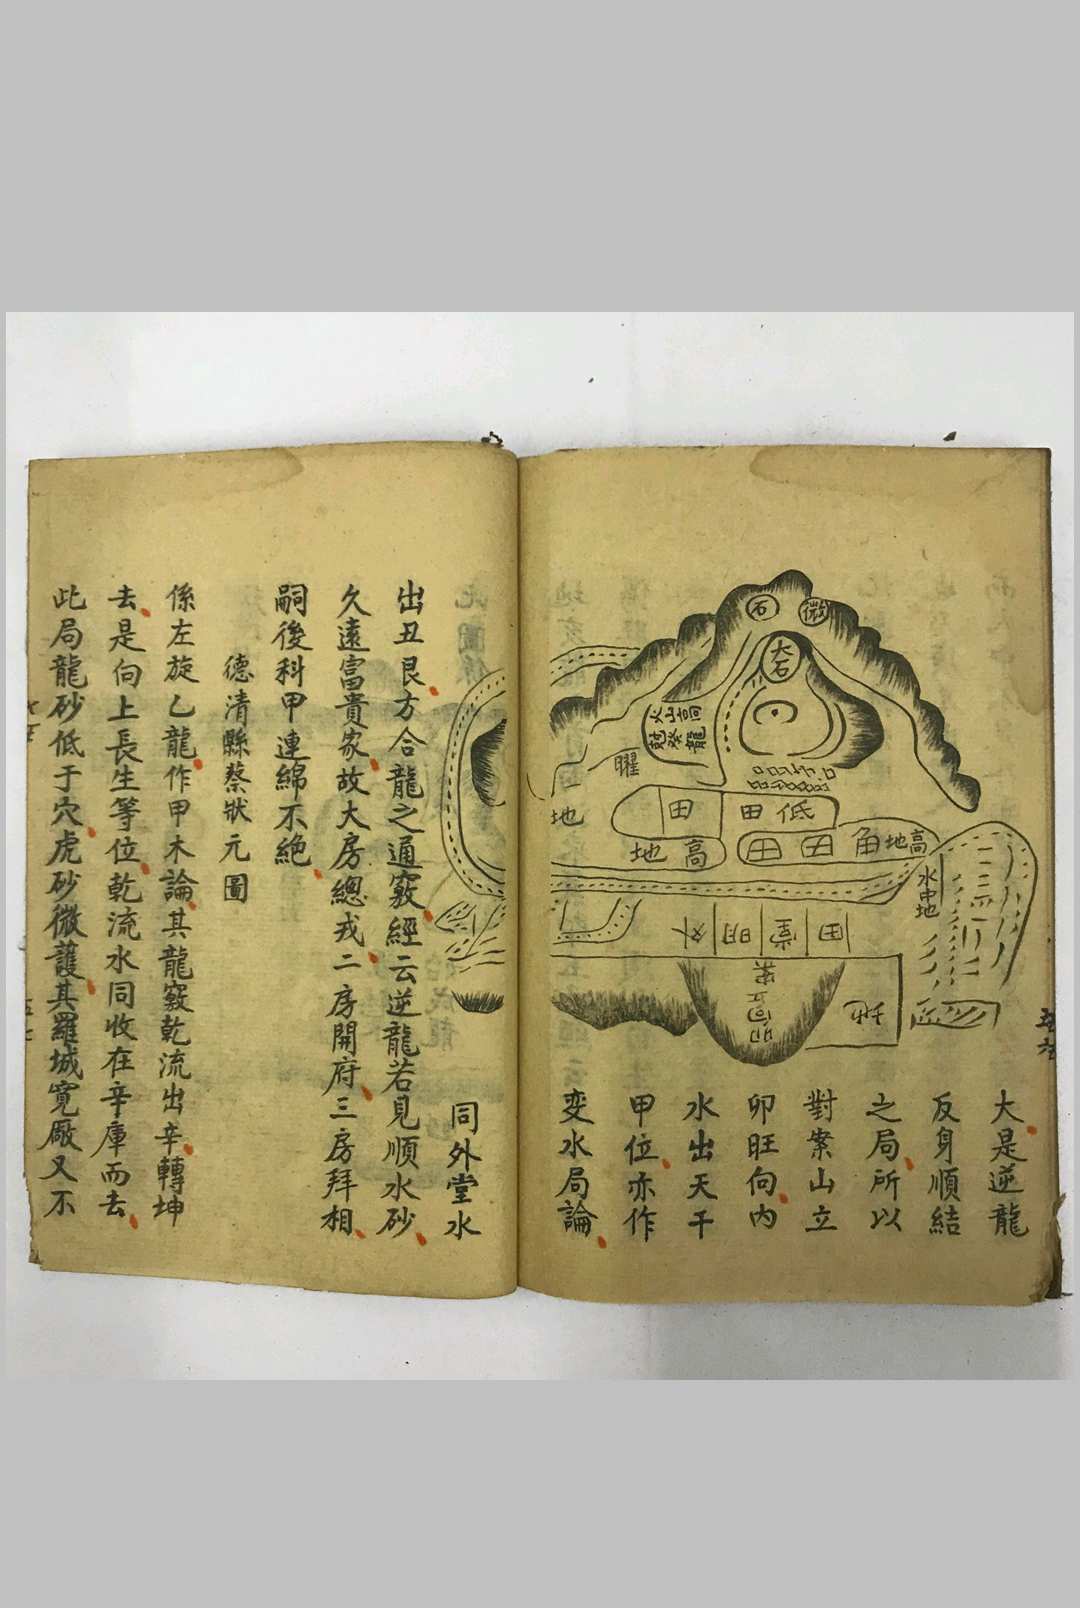 石
微
大石
高山火
龍癸起
曜
低田
田
地
高地
高地角田田
水中地
田堂明外
卯向立案
地
大是逆龍
反身順結
之局所以
對案山立
卯旺向内
水出天干
甲位亦作
变水局論
同外堂水
出丑艮方合龍之通竅經云逆龍若見順水砂
久遠富貴家故大房總戎二房開府三房拜相
嗣後科甲連綿不絶
德清縣蔡狀元圖
係左旋乙龍作甲木論其龍竅乾流出辛轉坤
去是向上長生等位乾流水同收在辛庫而去
此局龍砂低于穴虎砂微護其羅城寬厰又不